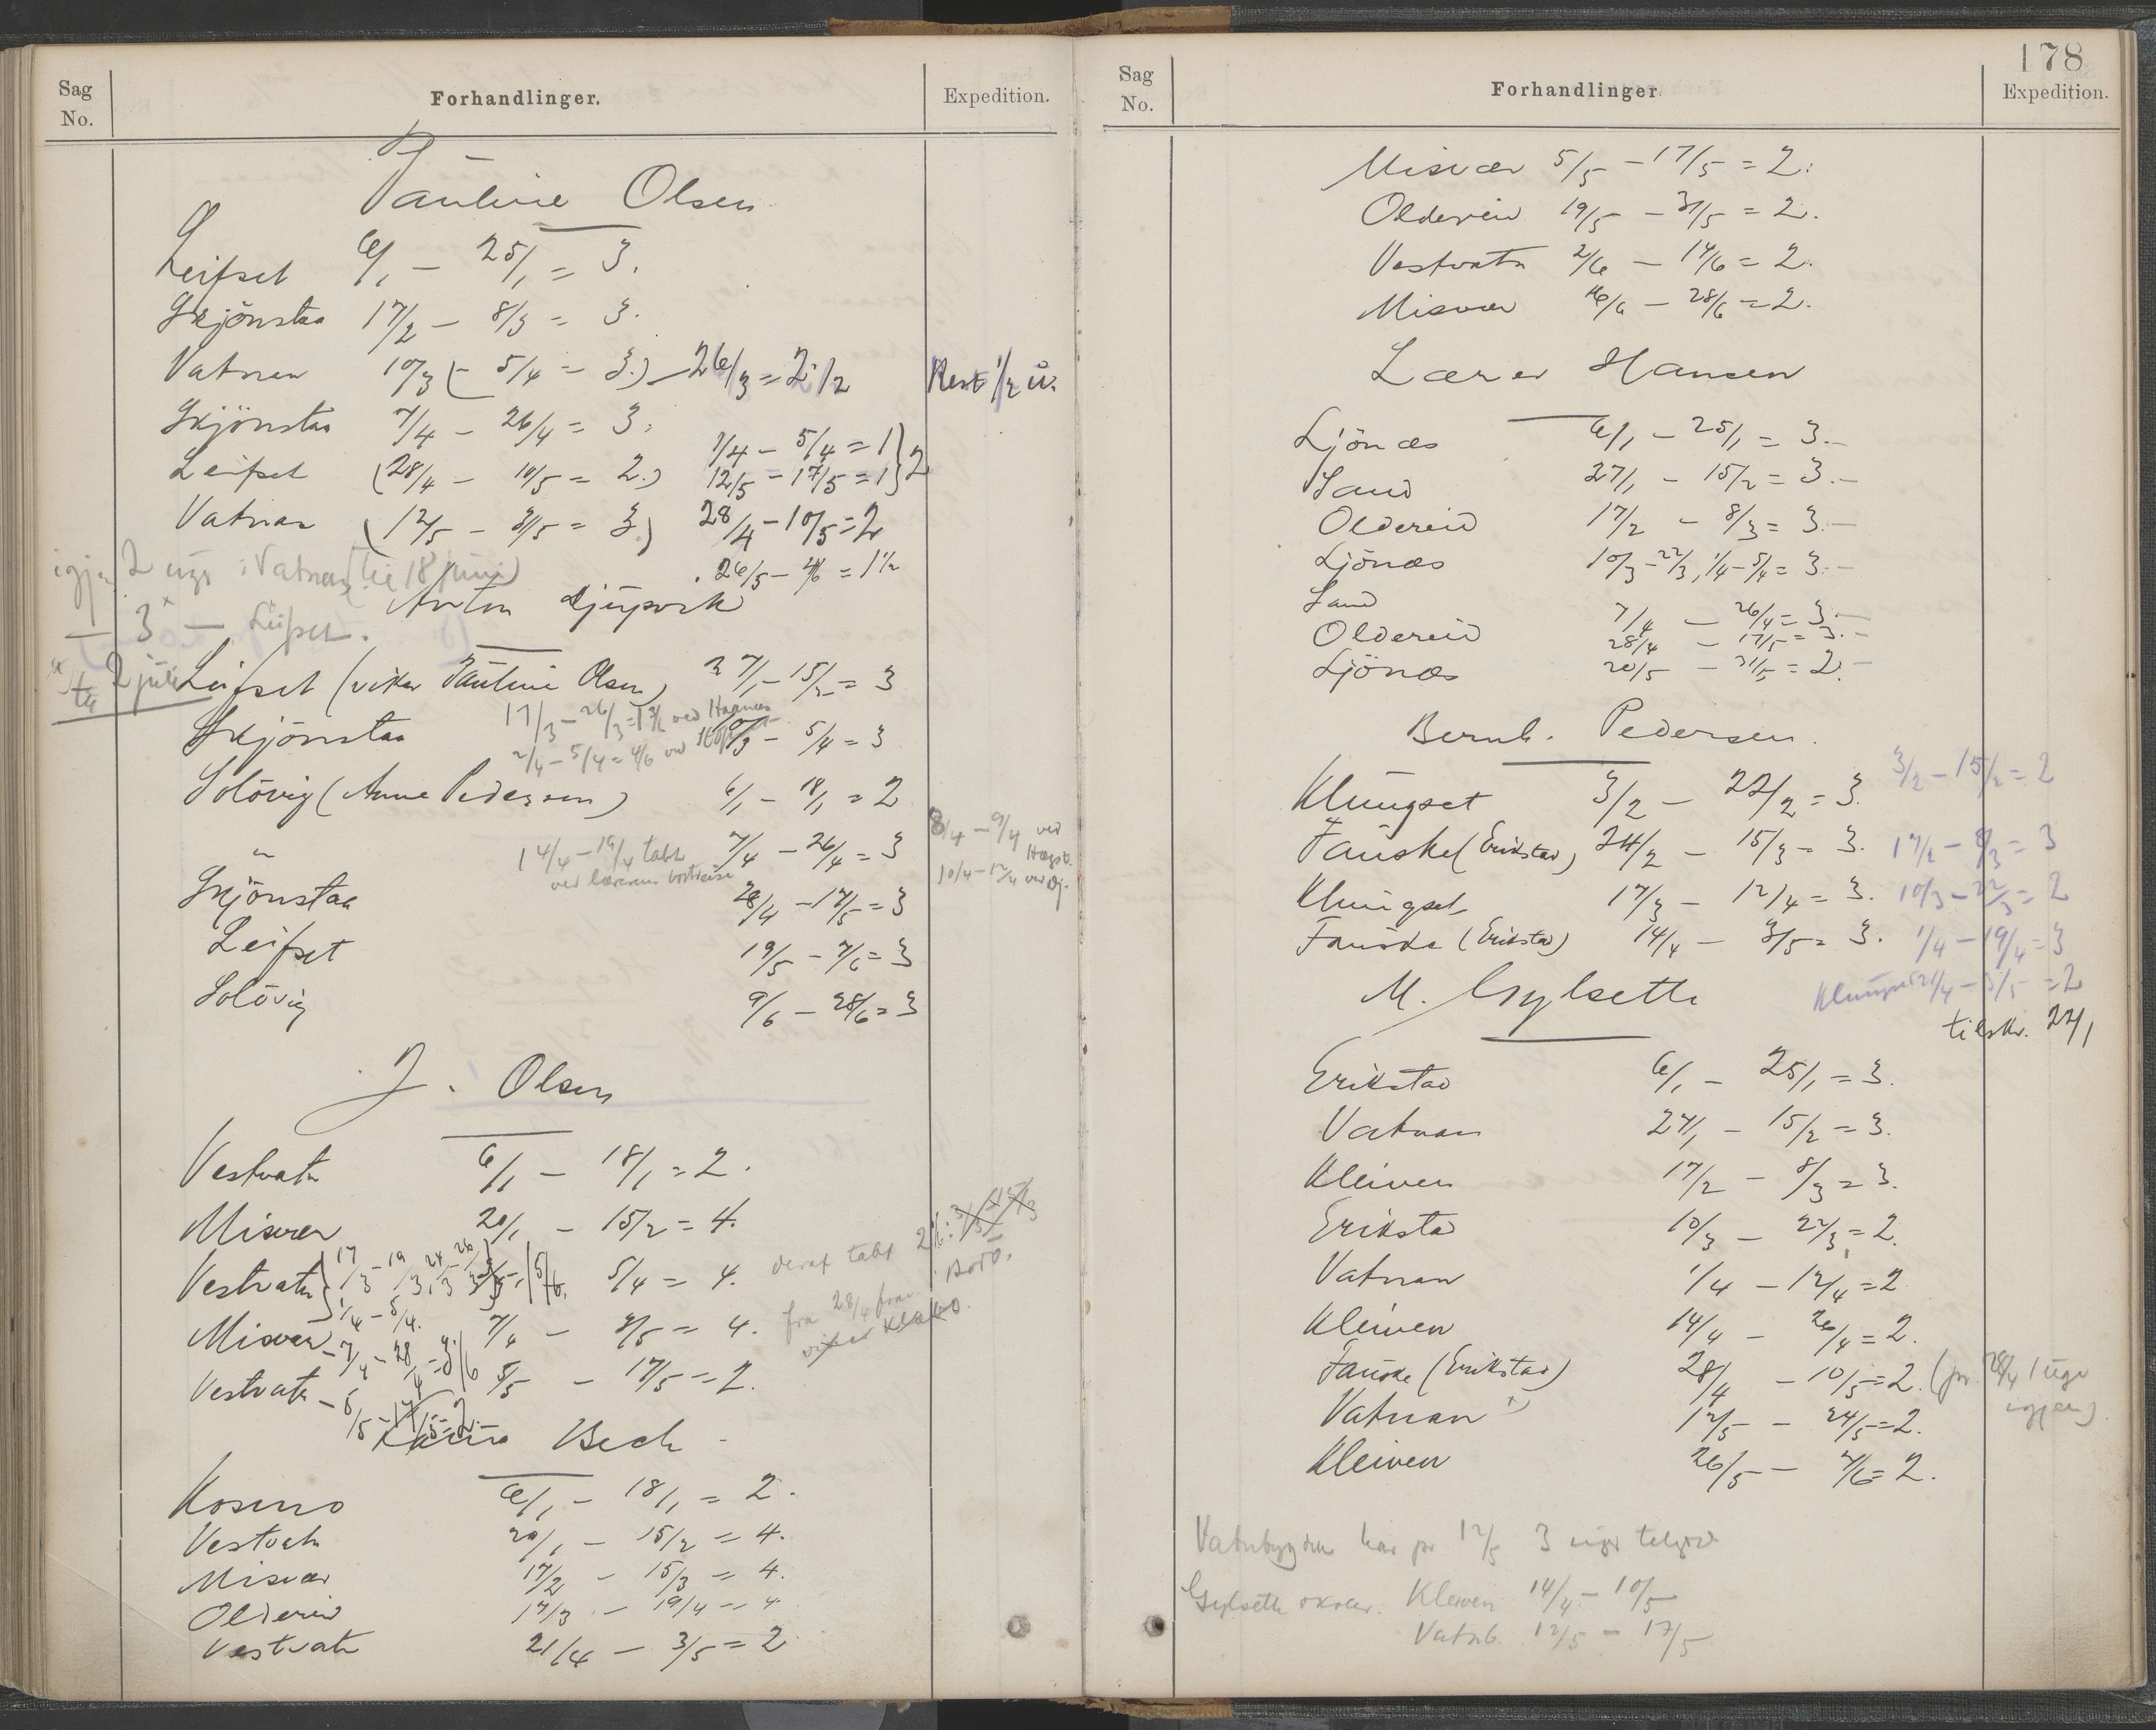 Sag No.
Forhandlinger.
Expedition.
Pauline Olsen
Leifset 6/1 - 25/1 = 3.
Skjönstaa 17/2 - 8/3 = 3.
Vatnan 10/3 (- 5/4 = 3.) - 26/3 = 2 1/2 Rest 1/2 u.
Skjönstaa 7/4 - 26/4 = 3.
1/4 - 5/4 = 1 } 2
Leifset (28/4 - 10/5 = 2.) 12/5 - 17/5 = 1
Vatnan (12/5 - 31/5 = 3.) 28/4 - 10/5 = 2
26/5 - 4/6 = 1 1/2
igjen 2 uger i Vatnan (til 18 juni)
Anton Djupvik
— 3 x — Leifset.
x til 2 juli
Leifset (vikar Pauline Olsen) 27/1 - 15/2 = 3
17/3 - 26/3 = 1 3/6 ved Haanes
Skjönstaa 10/3 - 5/4 = 3
2/4 - 5/4 = 4/6 ved
Solövig (Anne Pedersen) 6/1 - 18/1 = 2
8/4 - 9/4 ved Hægst.
" 7/4 - 26/4 = 3
14/4 - 19/4 tabt
ved lærerens bortreise
10/4 - 12/4 ved Dj.
Skjönstaa 28/4 - 17/5 = 3
Leifset 19/5 - 7/6 = 3
Solövig 9/6 - 28/6 = 3
J. Olsen
Vestvatn 6/1 - 18/1 = 2.
Misvær 20/1 - 15/2 = 4.
Vestvatn 17/3 - 19/3, 24/3 - 26/3 5/4 = 4. deraf tabt
1/4 - 5/4. Bodö.
Misvær 7/4 - 3/5 = 4. fra 28/4
- 7/4 - 28/4 = 3 /6
Vestvatn 5/5 - 17/5 = 2.
- 5/5 - 17/5 = 2.
Laura Bech
Kosmo 6/1 - 18/1 = 2.
Vestvatn 20/1 - 15/2 = 4.
Misvær 17/2 - 15/3 = 4.
Oldereid 17/3 - 19/4 = 4
Vestvatn 21/4 - 3/5 = 2
178
Sag No.
Forhandlinger
Expedition.
Misvær 5/5 - 17/5 = 2.
Oldereid 19/5 - 31/5 = 2.
Vestvatn 2/6 - 14/6 = 2.
Misvær 16/6 - 28/6 = 2.
Lærer Hansen
Ljönes 6/1 - 25/1 = 3. -
Sand 27/1 - 15/2 = 3. -
Oldereid 17/2 - 8/3 = 3. -
Ljönes 10/3 - 22/3, 1/4 - 5/4 = 3. -
Sand 7/4 - 26/4 = 3. -
Oldereid 28/4 - 17/5 = 3. -
Ljönes 20/5 - 31/5 = 2. -
Bernh. Pedersen.
Klungset 3/2 - 22/2 = 3. 3/2 - 15/2 = 2
Fauske (Erikstad) 24/2 - 15/3 = 3. 17/2 - 8/3 = 3
Klungset 17/3 - 12/4 = 3. 10/3 - 22/3 = 2
Fauske (Erikstad) 14/4 - 3/5 = 3. 1/4 - 19/4 = 3
M. Gylseth
Klungset 21/4 - 3/5 = 2
tilskr. 22/1
Erikstad 6/1 - 25/1 = 3.
Vatnan 27/1 - 15/2 = 3.
Kleiven 17/2 - 8/3 = 3.
Erikstad 10/3 - 22/3 = 2.
Vatnan 1/4 - 12/4 = 2
Kleiven 14/4 - 26/4 = 2.
Fauske (Erikstad) 28/4 - 10/5 = 2. (pr. 28/4 1 uge igjen)
Vatnan x) 12/5 - 24/5 = 2.
Kleiven 26/5 - 7/6 = 2.
Vatnbygden har pr 12/5 3 uger tilgode
Gylseth Kleiven 14/4 - 10/5
Vatnb. 12/5 - 17/5